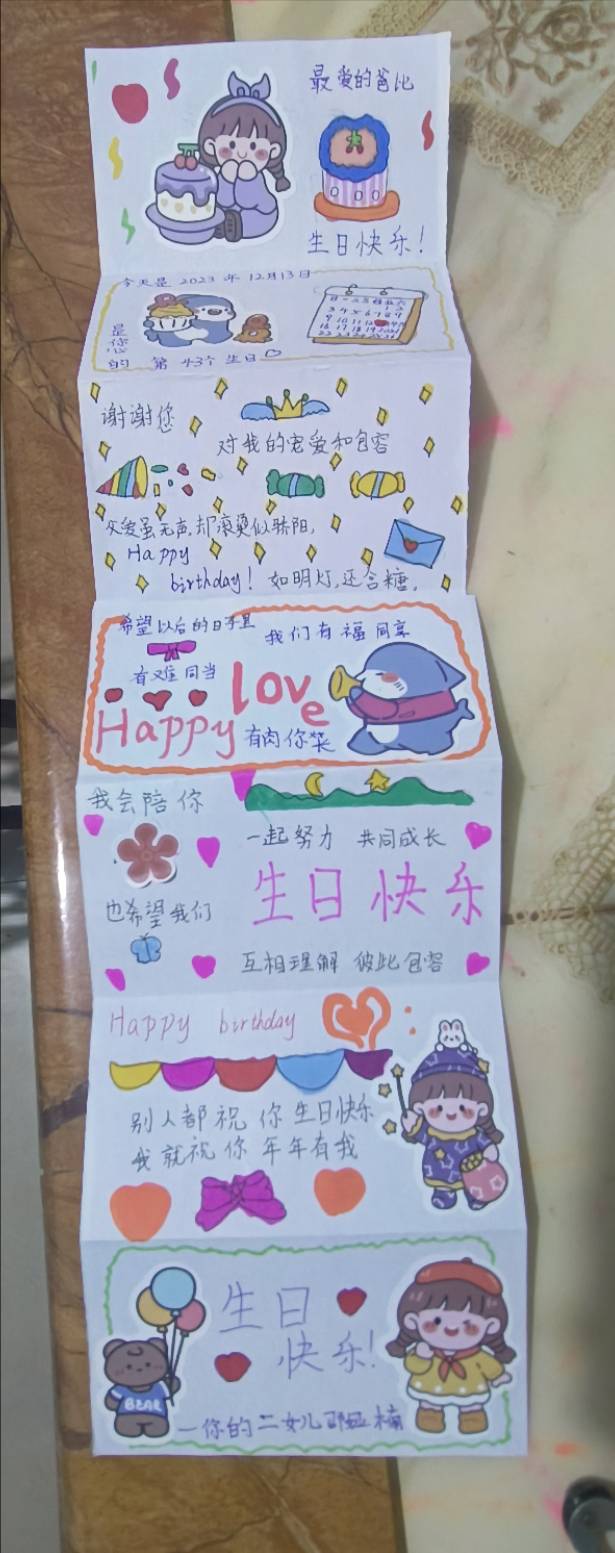 最爱的爸比
生日快乐!
今天是 2023 年 12月13日
是您
的 第 43个 生日
日一二三四五六
1 2
3 4 5 6 7 8 9
谢谢您
对我的宠爱和包容
父爱虽无声,却滚烫似骄阳,
Happy
birthday! 如明灯,还含糖。
希望以后的日子里
我们有福同享
有难同当
love
Happy
有肉你煲
我会陪你
一起努力 共同成长
生日快乐
也希望我们
互相理解 彼此包容
Happy birthday
别人都祝你生日快乐
我就祝你年年有我
生日
快乐!
BEAR
—你的二女儿